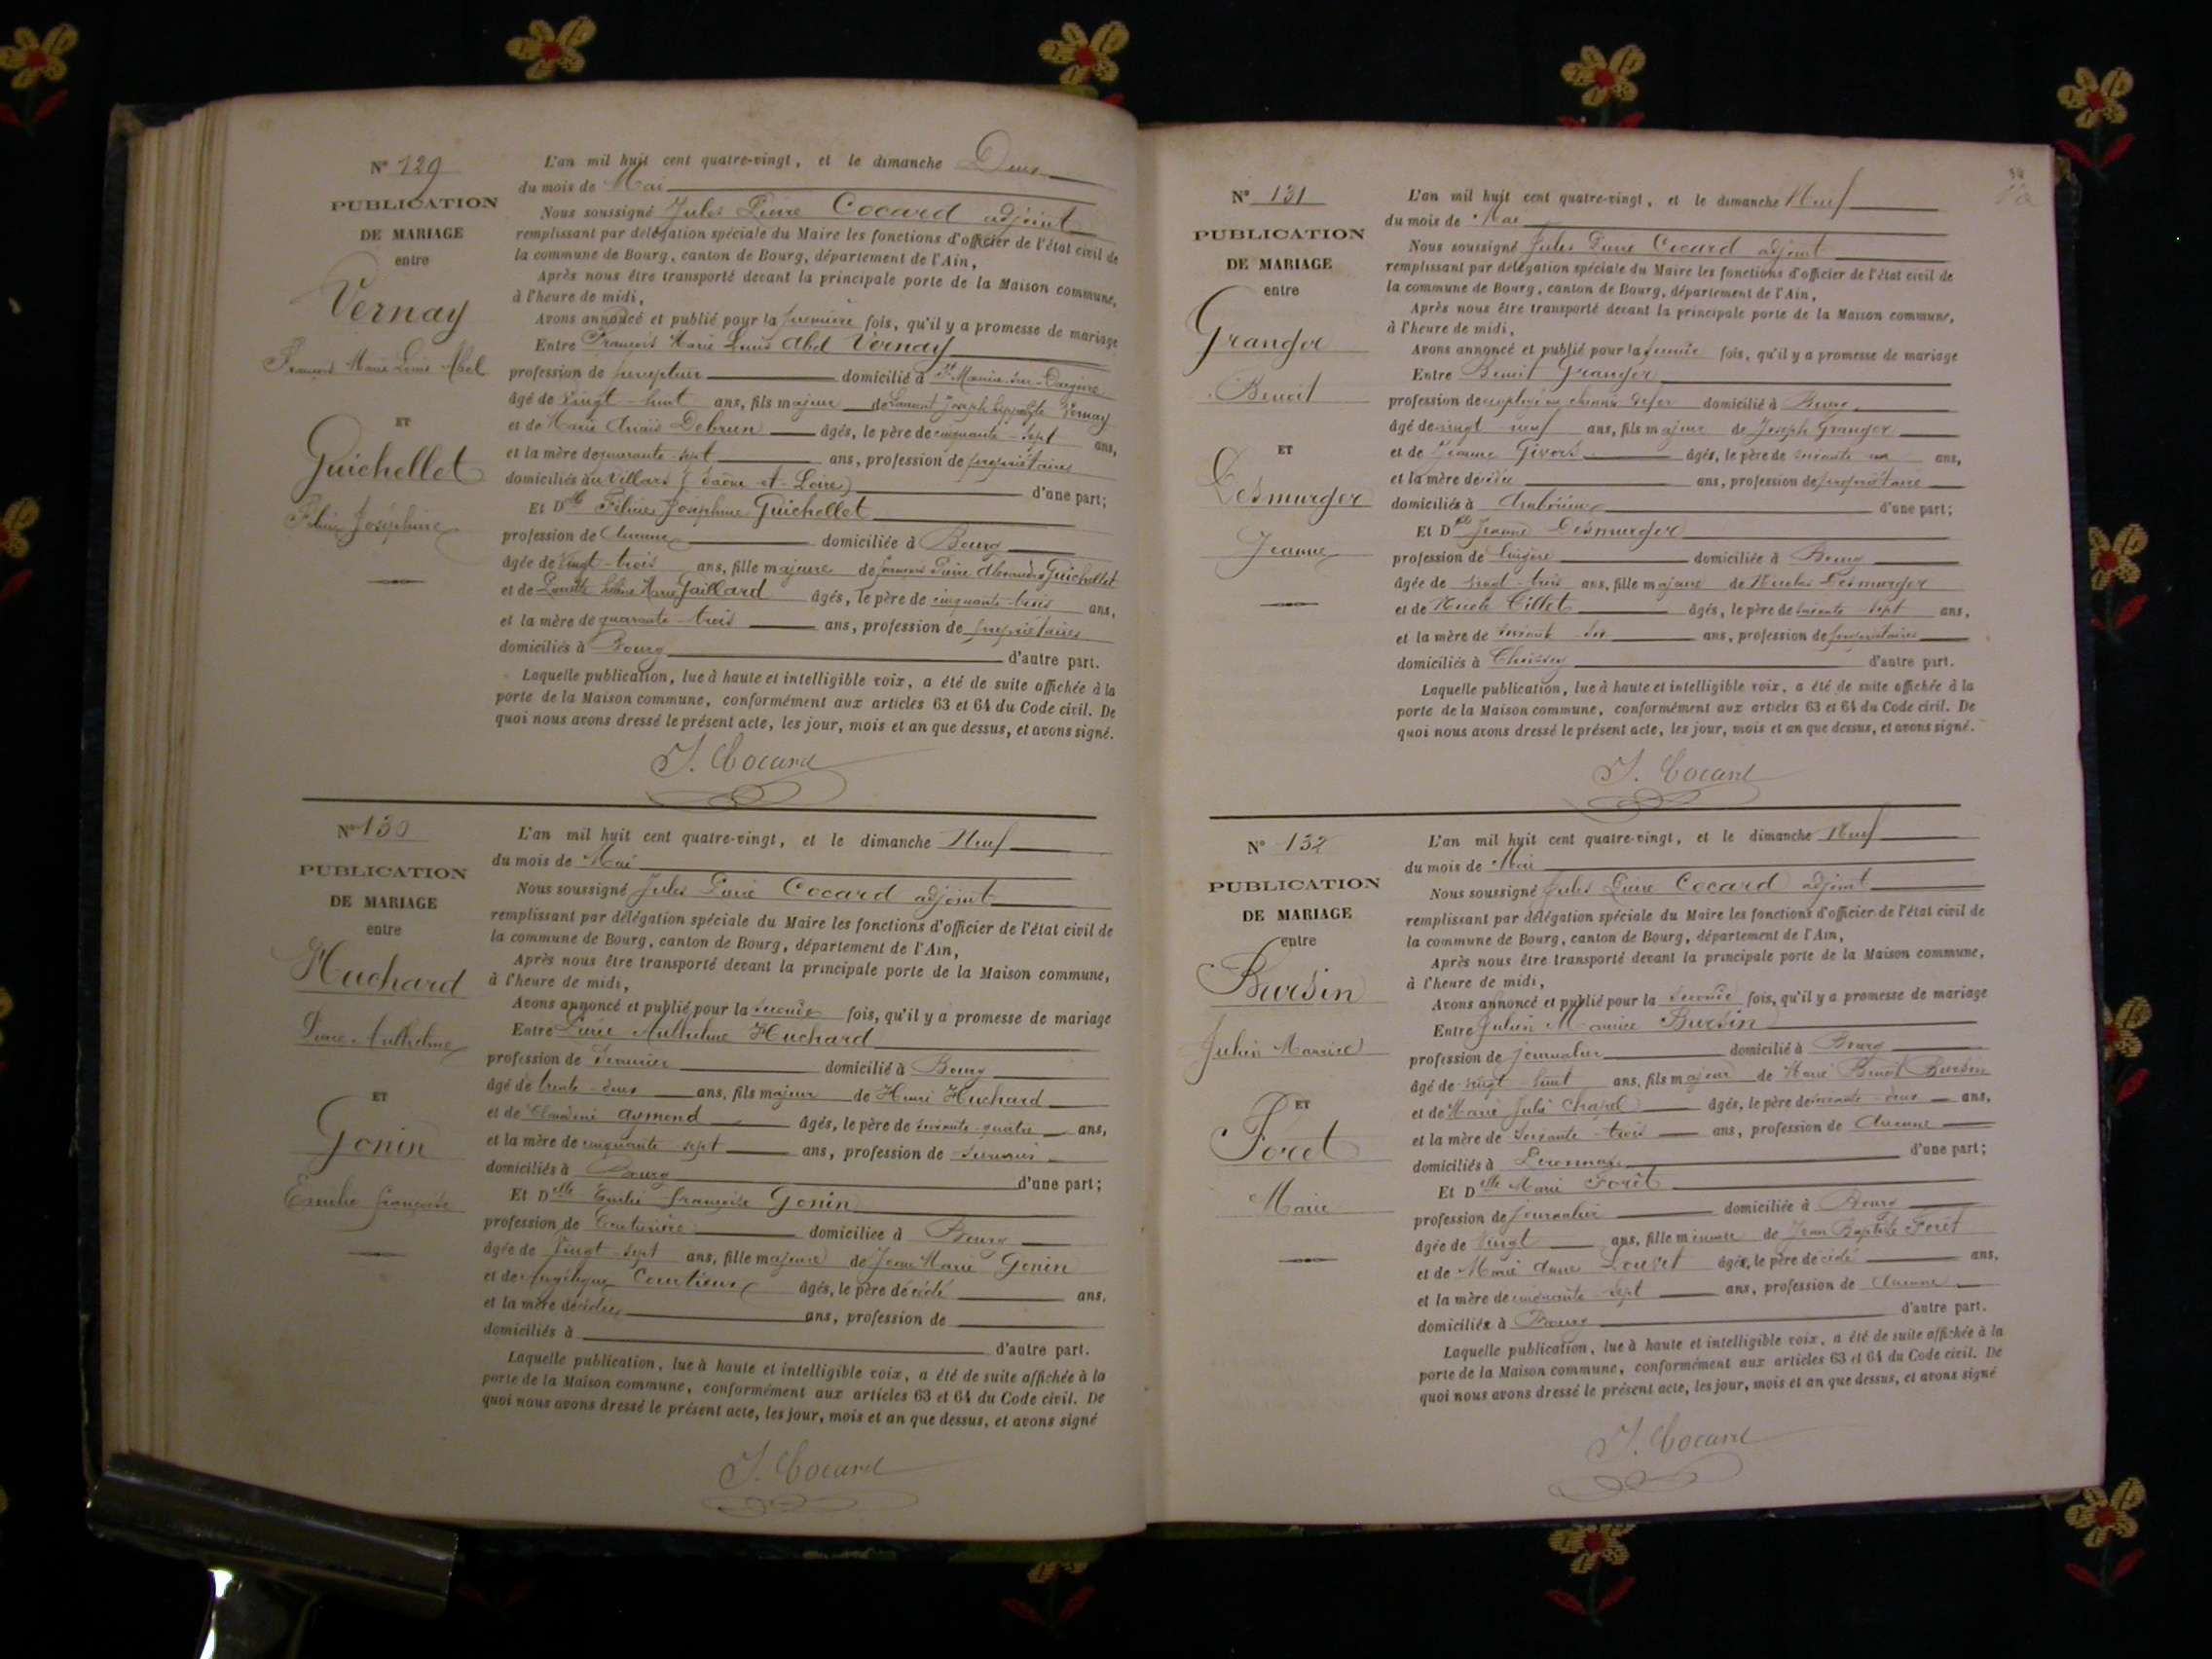 Nº 129
PUBLICATION
DE MARIAGE
entre
Vernay
François Marie Louis Abel
ET
Guichellet
Félicie Joséphine
L'an mil huit cent quatre-vingt, et le dimanche Deux
du mois de Mai
Nous soussigné Jules Pierre Cocard adjoint
remplissant par délégation spéciale du Maire les fonctions d'officier de l'état civil de
la commune de Bourg, canton de Bourg, département de l'Ain,
Après nous être transporté devant la principale porte de la Maison commune,
à l'heure de midi,
Avons annoncé et publié pour la première fois, qu'il y a promesse de mariage
Entre François Marie Louis Abel Vernay
profession de percepteur domicilié à
âgé de vingt-huit ans, fils majeur de Laurent Joseph Hippolyte Vernay
et de Marie Debrun âgés, le père de cinquante-sept ans,
et la mère de quarante-sept ans, profession de propriétaires
domiciliés au Villars (Saône-et-Loire) d'une part;
Et Dlle Félicie Joséphine Guichellet
profession de Aucune domiciliée à Bourg
âgée de vingt-trois ans, fille majeure de François Pierre Alexandre Guichellet
et de Marie Gaillard âgés, le père de cinquante-trois ans,
et la mère de quarante-trois ans, profession de propriétaires
domiciliés à Bourg d'autre part.
Laquelle publication, lue à haute et intelligible voix, a été de suite affichée à la
porte de la Maison commune, conformément aux articles 63 et 64 du Code civil. De
quoi nous avons dressé le présent acte, les jour, mois et an que dessus, et avons signé.
J. Cocard
Nº 130
PUBLICATION
DE MARIAGE
entre
Huchard
Pierre Anthelme
ET
Gonin
Emilie Françoise
L'an mil huit cent quatre-vingt, et le dimanche Neuf
du mois de Mai
Nous soussigné Jules Pierre Cocard adjoint
remplissant par délégation spéciale du Maire les fonctions d'officier de l'état civil de
la commune de Bourg, canton de Bourg, département de l'Ain,
Après nous être transporté devant la principale porte de la Maison commune,
à l'heure de midi,
Avons annoncé et publié pour la seconde fois, qu'il y a promesse de mariage
Entre Pierre Anthelme Huchard
profession de Serrurier domicilié à Bourg
âgé de trente-deux ans, fils majeur de Henri Huchard
et de Claudine Aymond âgés, le père de soixante-quatre ans,
et la mère de cinquante-sept ans, profession de
domiciliés à Bourg d'une part;
Et Dlle Emilie Françoise Gonin
profession de Couturière domiciliée à Bourg
âgée de Vingt-sept ans, fille majeure de Jean Marie Gonin
et de Angélique âgés, le père décédé ans,
et la mère décédée ans, profession de
domiciliés à d'autre part.
Laquelle publication, lue à haute et intelligible voix, a été de suite affichée à la
porte de la Maison commune, conformément aux articles 63 et 64 du Code civil. De
quoi nous avons dressé le présent acte, les jour, mois et an que dessus, et avons signé
J. Cocard
Nº 131
PUBLICATION
DE MARIAGE
entre
Granger
Benoit
ET
Desmurger
Jeanne
L'an mil huit cent quatre-vingt, et le dimanche Neuf
du mois de Mai
Nous soussigné Jules Pierre Cocard adjoint
remplissant par délégation spéciale du Maire les fonctions d'officier de l'état civil de
la commune de Bourg, canton de Bourg, département de l'Ain,
Après nous être transporté devant la principale porte de la Maison commune,
à l'heure de midi,
Avons annoncé et publié pour la fois, qu'il y a promesse de mariage
Entre Benoit Granger
profession de employé au chemin de fer domicilié à Bourg
âgé de vingt-neuf ans, fils majeur de Joseph Granger
et de Jeanne Givord âgés, le père de soixante un ans,
et la mère décédée ans, profession de propriétaire
domiciliés à d'une part;
Et Dlle Jeanne Desmurger
profession de lingère domiciliée à Bourg
âgée de vingt-trois ans, fille majeure de Nicolas Desmurger
et de âgés, le père de soixante-sept ans,
et la mère de ans, profession de propriétaires
domiciliés à d'autre part.
Laquelle publication, lue à haute et intelligible voix, a été de suite affichée à la
porte de la Maison commune, conformément aux articles 63 et 64 du Code civil. De
quoi nous avons dressé le présent acte, les jour, mois et an que dessus, et avons signé.
J. Cocard
Nº 132
PUBLICATION
DE MARIAGE
entre
Bursin
Julien Maurice
ET
Foret
Marie
L'an mil huit cent quatre-vingt, et le dimanche Neuf
du mois de Mai
Nous soussigné Jules Pierre Cocard adjoint
remplissant par délégation spéciale du Maire les fonctions d'officier de l'état civil de
la commune de Bourg, canton de Bourg, département de l'Ain,
Après nous être transporté devant la principale porte de la Maison commune,
à l'heure de midi,
Avons annoncé et publié pour la seconde fois, qu'il y a promesse de mariage
Entre Julien Maurice Bursin
profession de journalier domicilié à Bourg
âgé de vingt-huit ans, fils majeur de Marie Benoit Bursin
et de Marie Julie Chapel âgés, le père de soixante-deux ans,
et la mère de soixante-trois ans, profession de Aucune
domiciliés à Peronnas d'une part;
Et Dlle Marie Forêt
profession de journalière domiciliée à Bourg
âgée de Vingt ans, fille mineure de Jean Baptiste Forêt
et de Marie Anne âgés, le père décédé ans,
et la mère de cinquante-sept ans, profession de Aucune
domiciliés à Bourg d'autre part.
Laquelle publication, lue à haute et intelligible voix, a été de suite affichée à la
porte de la Maison commune, conformément aux articles 63 et 64 du Code civil. De
quoi nous avons dressé le présent acte, les jour, mois et an que dessus, et avons signé
J. Cocard